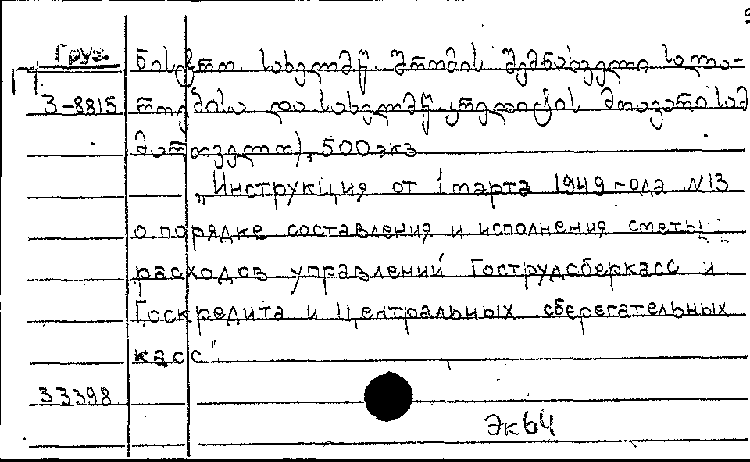 Груз.
სახელმწ. შრომის შემნახველი სალა-
3-8815 როების და სახელმწ. კრედიტის მთავარი სამ
მართველო), 500 экз
„Инструкция от 1 марта 1949 года N13
о порядке составления и исполнения сметы
расходов управлений Гострудсберкасс и
Госкредита и Центральных сберегательных
касс"
33398
Эк64